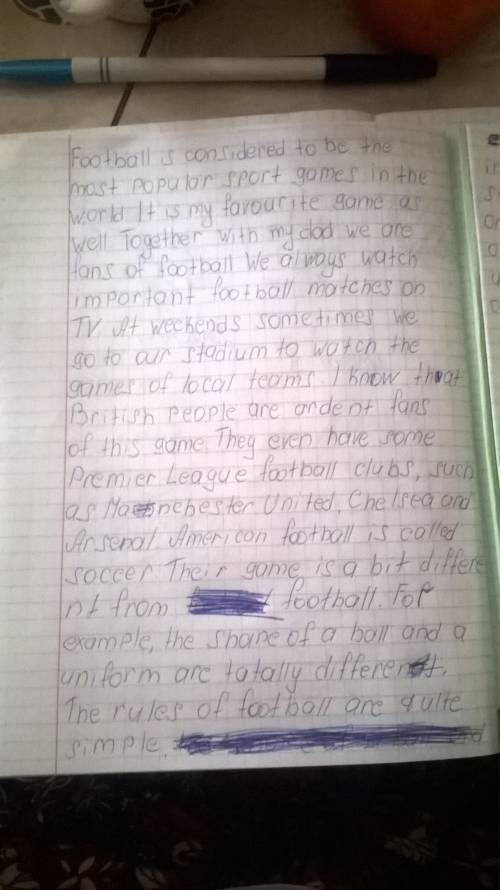 Football is considered to be the
most popular sport games in the
world. It is my favourite game as
well. Together with my dad we are
fans of football. We always watch
important football matches on
TV. At weekends sometimes we
go to our stadium to watch the
games of local teams. I know that
British people are ardent fans
of this game. They even have some
Premier League football clubs, such
as Manchester United, Chelsea and
Arsenal. American football is called
soccer. Their game is a bit differe
nt from football. For
example, the shape of a ball and a
uniform are tatally different.
The rules of football are quite
simple.